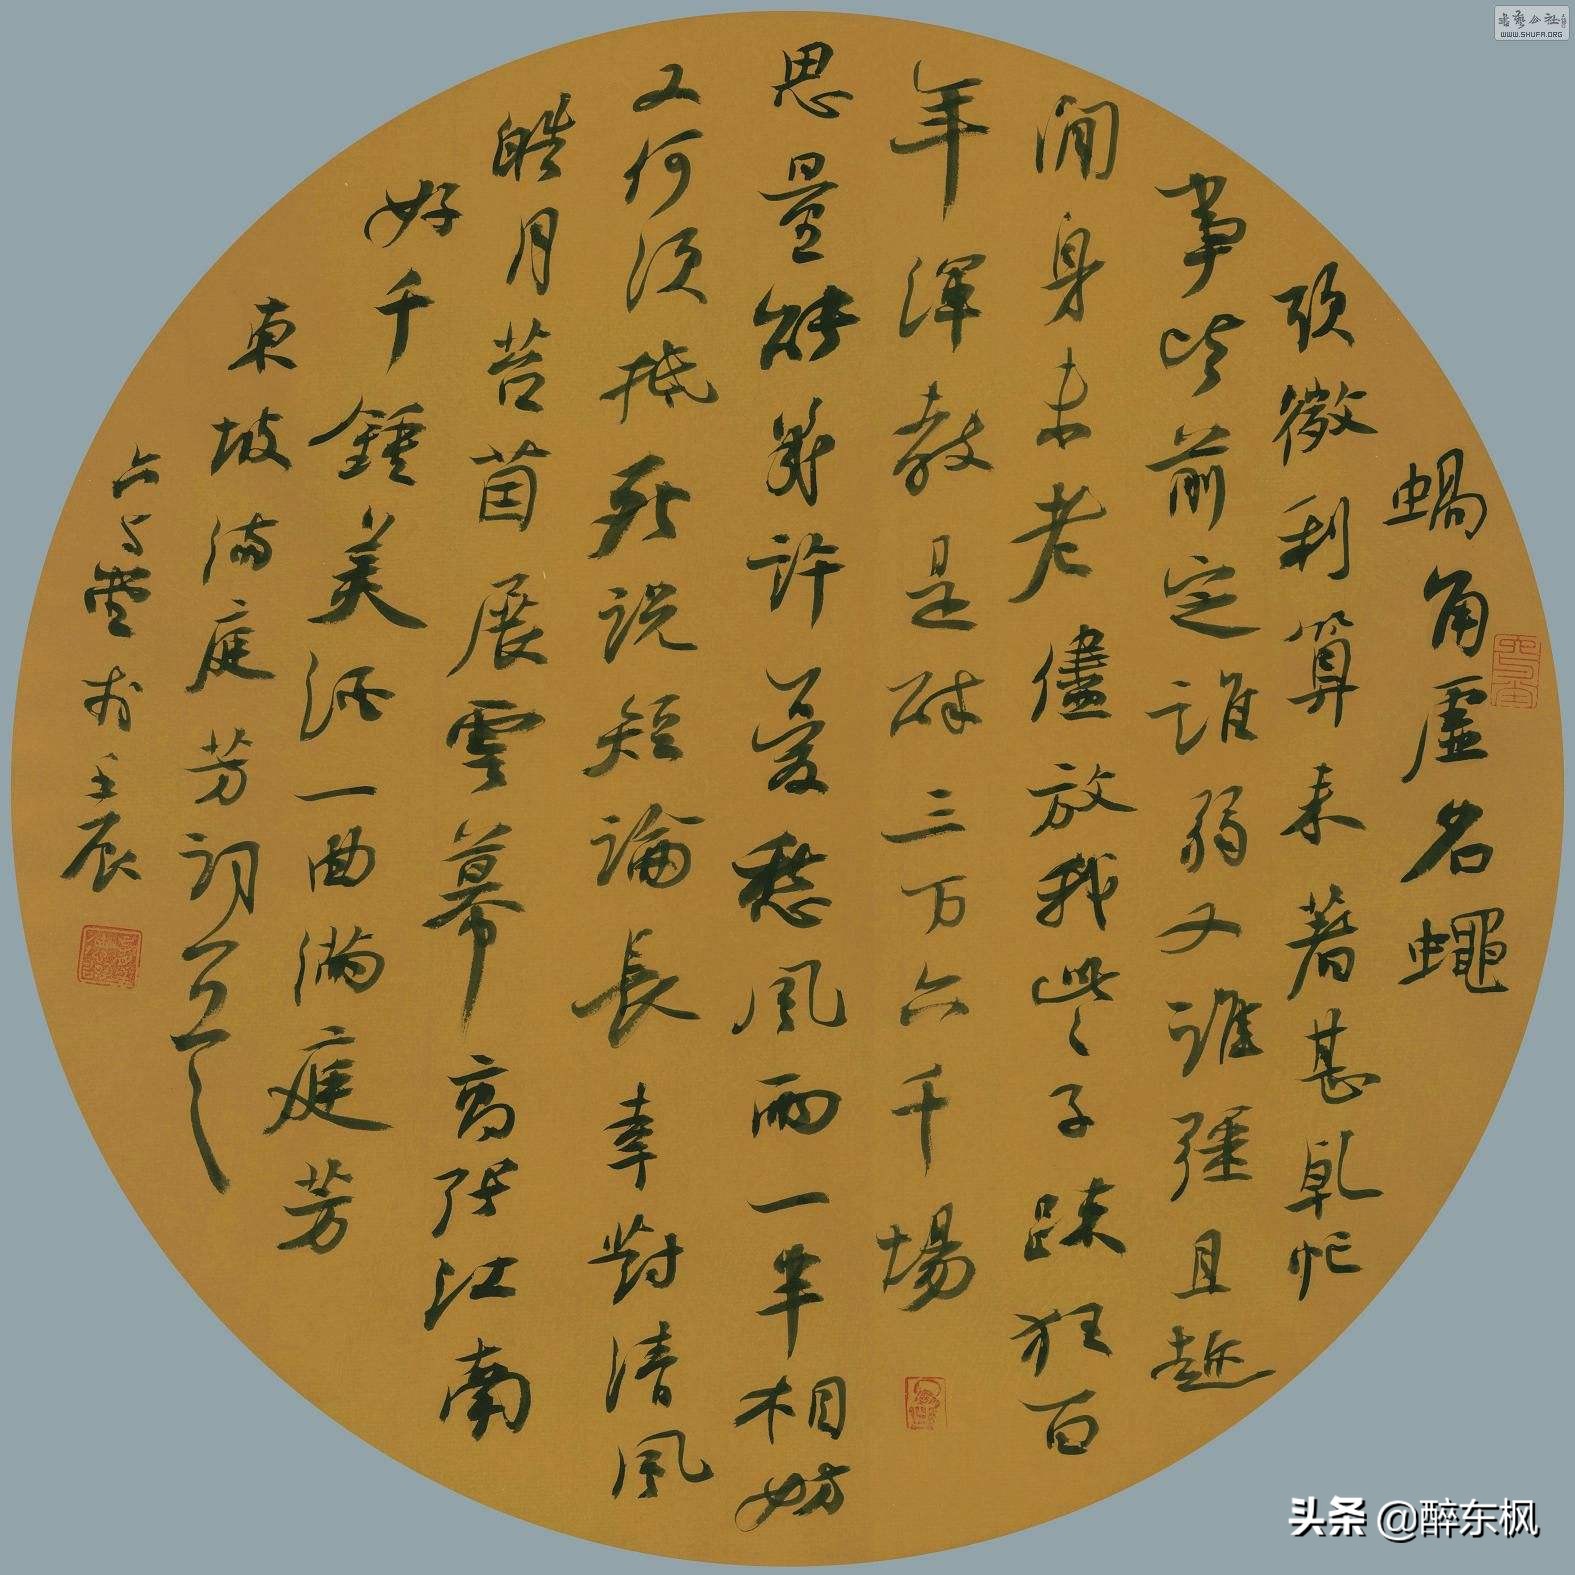 蝸角虛名蠅
頭微利算来著甚乾忙
事皆前定誰弱又誰彊且趁
閒身未老儘放我些子疎狂百
年渾教是醉三万六千場
思量能幾許憂愁風雨一半相妨
又何須抵死說短論長幸對清風
皓月苔茵展雲幕高張江南
好千鍾美酒一曲滿庭芳
東坡滿庭芳詞
於壬辰
WWW.SHUFA.ORG
头条 @醉东枫